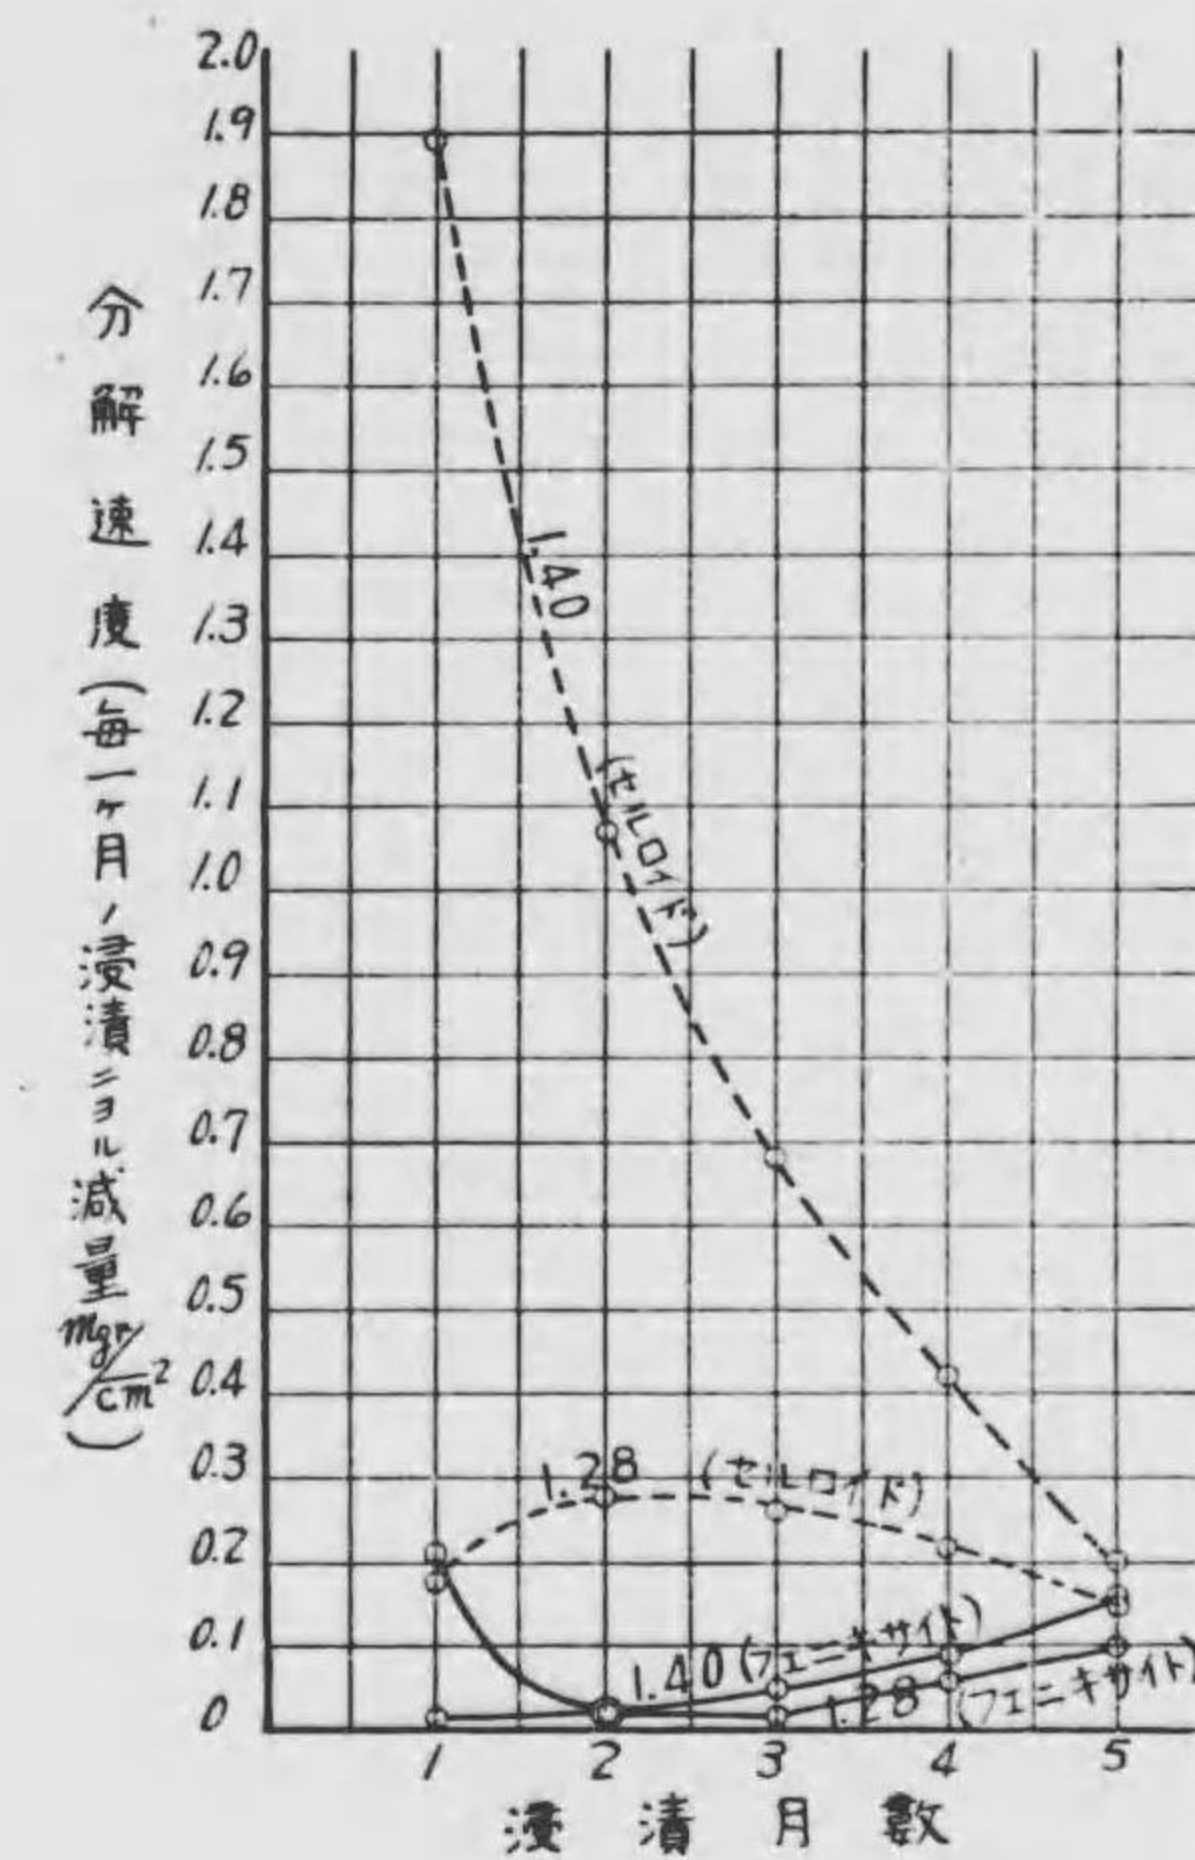 分解速度(每一ケ月ノ浸漬ニヨル減量 mgr/cm²)
2.0
1.9
1.8
1.7
1.6
1.5
1.4
1.3
1.2
1.1
1.0
0.9
0.8
0.7
0.6
0.5
0.4
0.3
0.2
0.1
0
1.40 (セルロイド)
1.28 (セルロイド)
1.40 (フェニキサイト)
1.28 (フェニキサイト)
1 2 3 4 5
浸漬月數